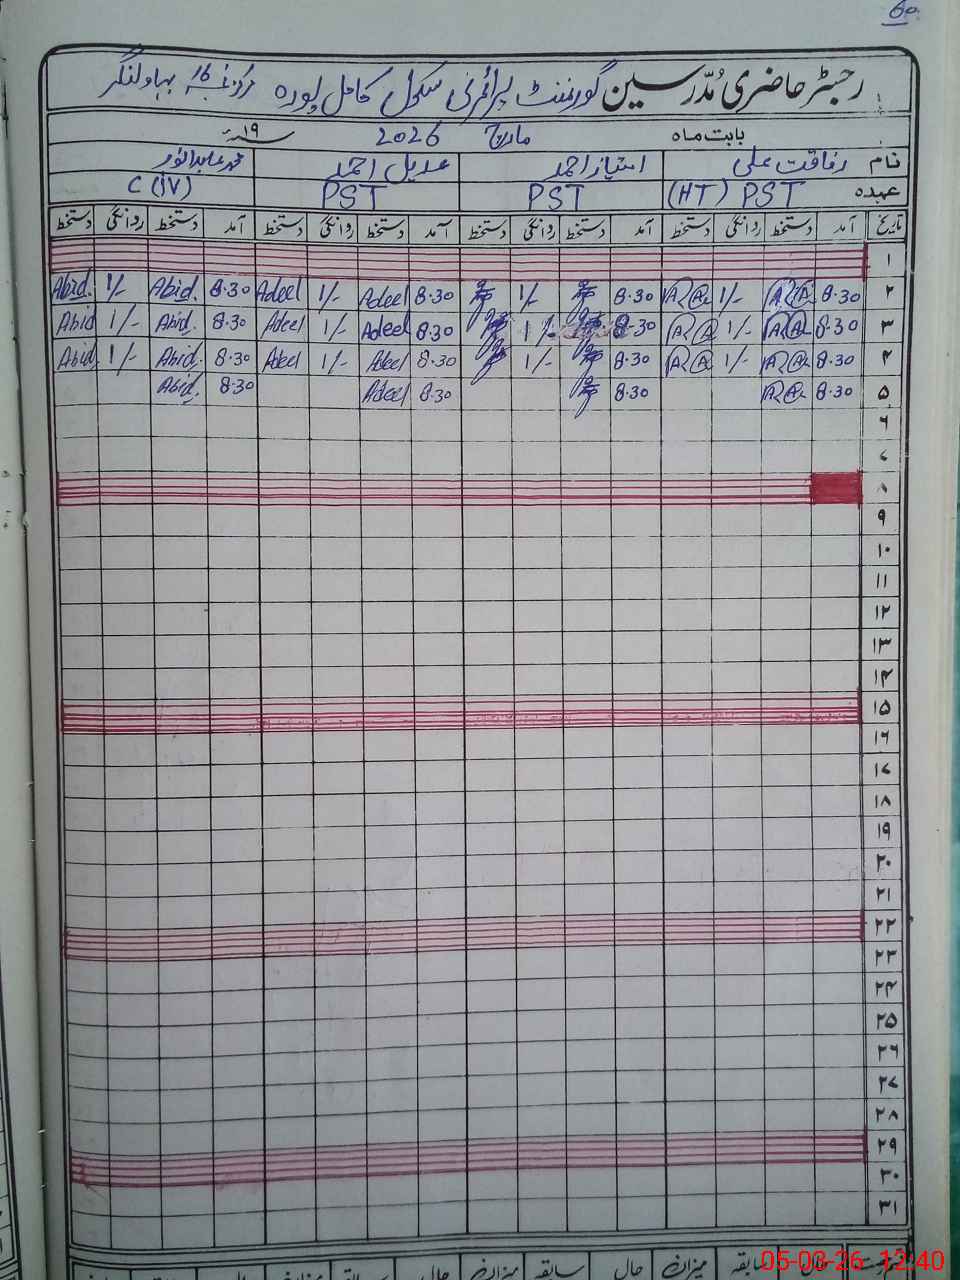 60
رجسٹر حاضری مدرسین گورنمنٹ پرائمری سکول کامل پورہ مرکز نمبر 16 بہاولنگر
بابت ماہ مارچ 2026 ۱۹ء
نام رفاقت علی امتیاز احمد عدیل احمد محمد عابد انور
عہدہ (HT) PST PST PST C (IV)
تاریخ آمد دستخط روانگی دستخط آمد دستخط روانگی دستخط آمد دستخط روانگی دستخط آمد دستخط روانگی دستخط
۱
۲ 8.30 1/- 8.30 1/- 8.30 Adeel 1/- Adeel 8.30 Abid. 1/- Abid.
۳ 8.30 1/- 8.30 1/- 8.30 Adeel 1/- Adeel 8.30 Abid. 1/- Abid
۴ 8.30 1/- 8.30 1/- 8.30 Adeel 1/- Adeel 8.30 Abid. 1/- Abid
۵ 8.30 8.30 8.30 Adeel 8.30 Abid.
۶
۷
۸
۹
۱۰
۱۱
۱۲
۱۳
۱۴
۱۵
۱۶
۱۷
۱۸
۱۹
۲۰
۲۱
۲۲
۲۳
۲۴
۲۵
۲۶
۲۷
۲۸
۲۹
۳۰
۳۱
حال سابقہ میزان حال سابقہ میزان حال سابقہ میزان
05-03-26 12:40